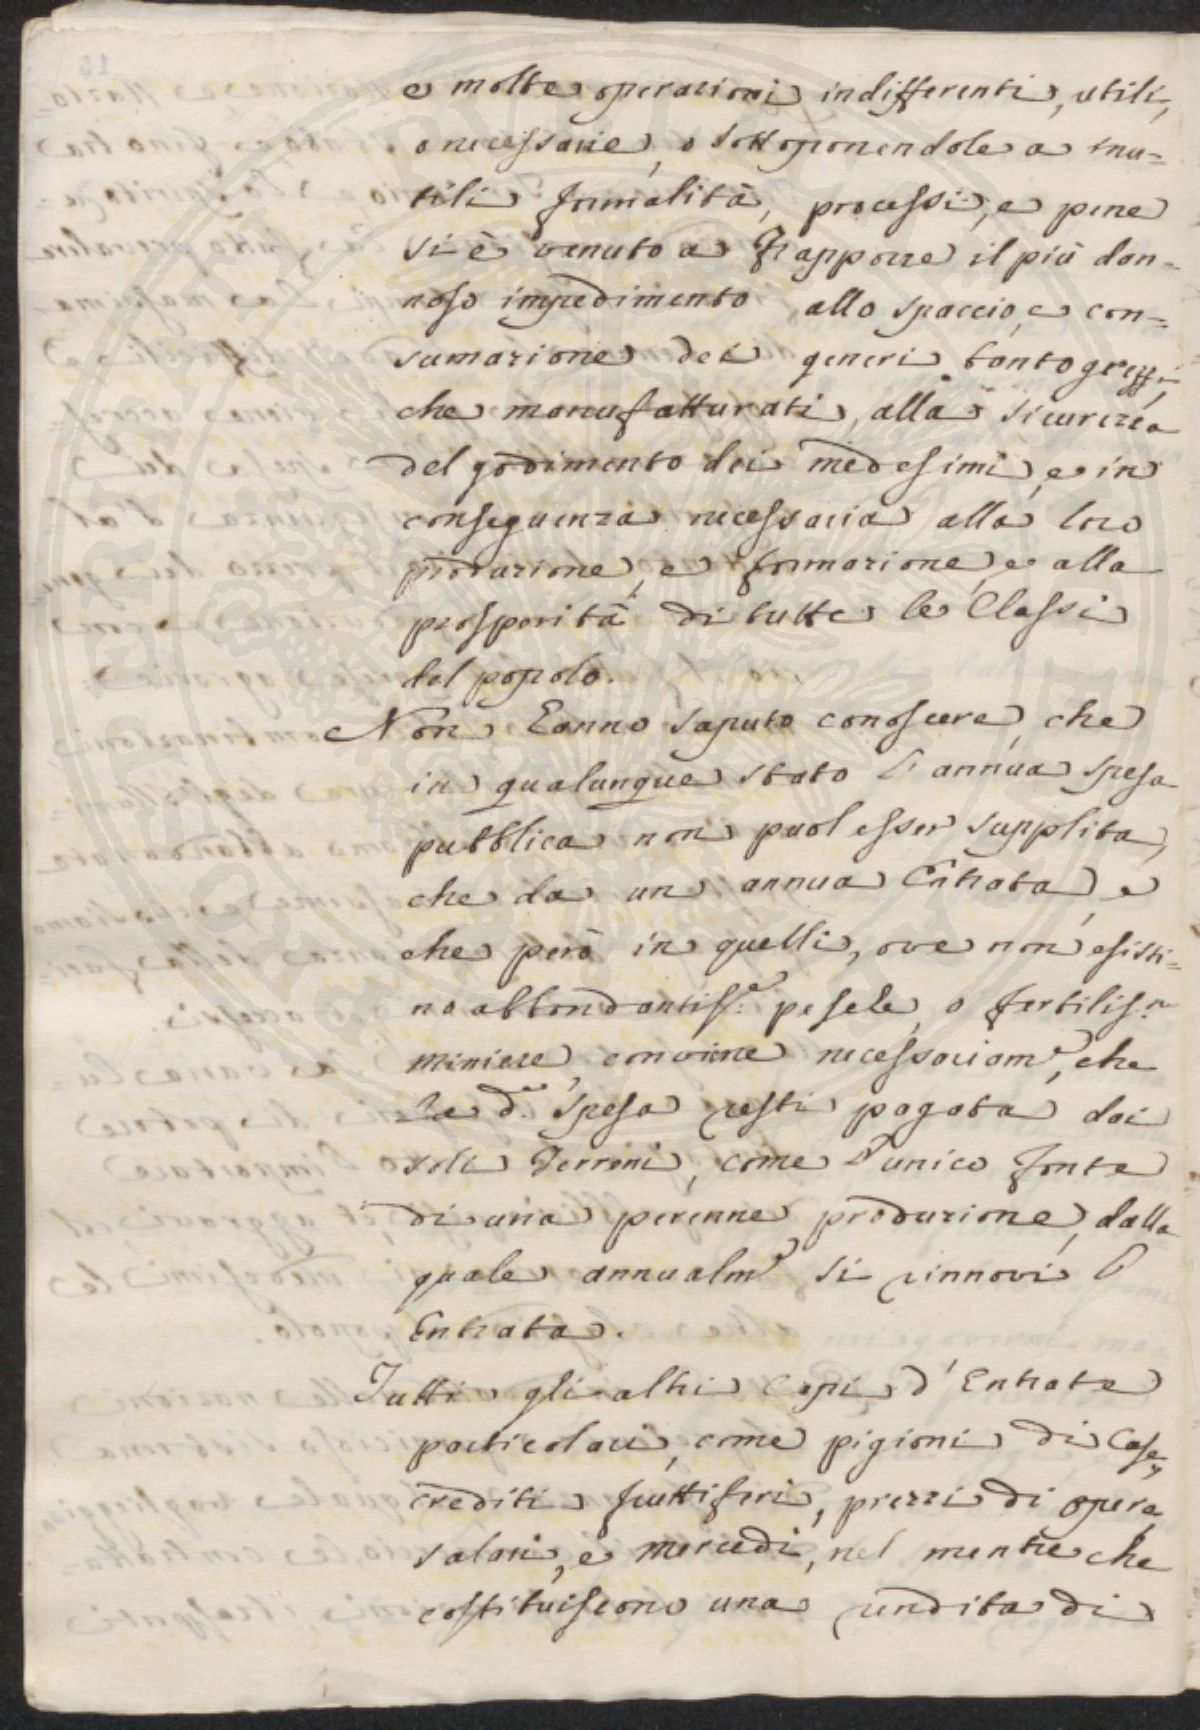 e molte operazioni indifferenti, utili,
o necessarie, o sottoponendole a inu=
tili formalità, processi, e pene
si è venuto a frapporre il più dan=
noso impedimento allo spaccio, e con=
sumazione dei generi tanto greggi,
che manufatturati, alla sicurezza
del godimento dei medesimi, e in
conseguenza necessaria alla loro
produzione, e formazione, e alla
prosperità di tutte le Classi
del popolo.
Non hanno saputo conoscere, che
in qualunque stato l'annua spesa
pubblica non puol esser supplita,
che da un annua Entrata, e
che però in quelli, ove non esisti=
no abbondantiss.e pesche, o fertiliss.me
miniere, conviene necessariam.e, che
la d.a spesa resti pagata dai
soli Terreni, come l'unico fonte
di una perenne produzione, dalla
quale annualm.e si rinnovi l'
Entrata.
Tutti gli altri Capi d'Entrate
particolari, come pigioni di Case,
crediti fruttiferi, prezzi di opere,
salari, e mercedi, nel mentre che
costituiscono una rendita di